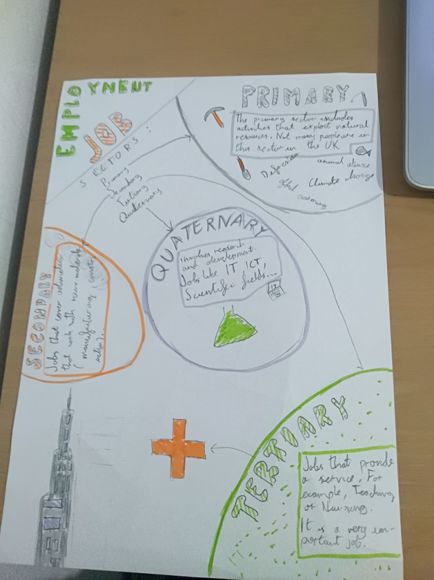 EMPLOYNEUT
JOB
SECTORS:
Primary
Secondary
Tertiary
Quaternary
PRIMARY
The primary sector includes
activities that exploit natural
resources. Not many people are in
this sector in the UK
animal abuse
Climate change
QUATERNARY
and development.
Jobs like IT ICT,
Scientific fields...
SECONDARY
Jobs that
that work with raw materials
(manufacturing, construction
TERTIARY
Jobs that provide
a service. For
example, Teaching
or Nursing.
It is a very im-
portant job.